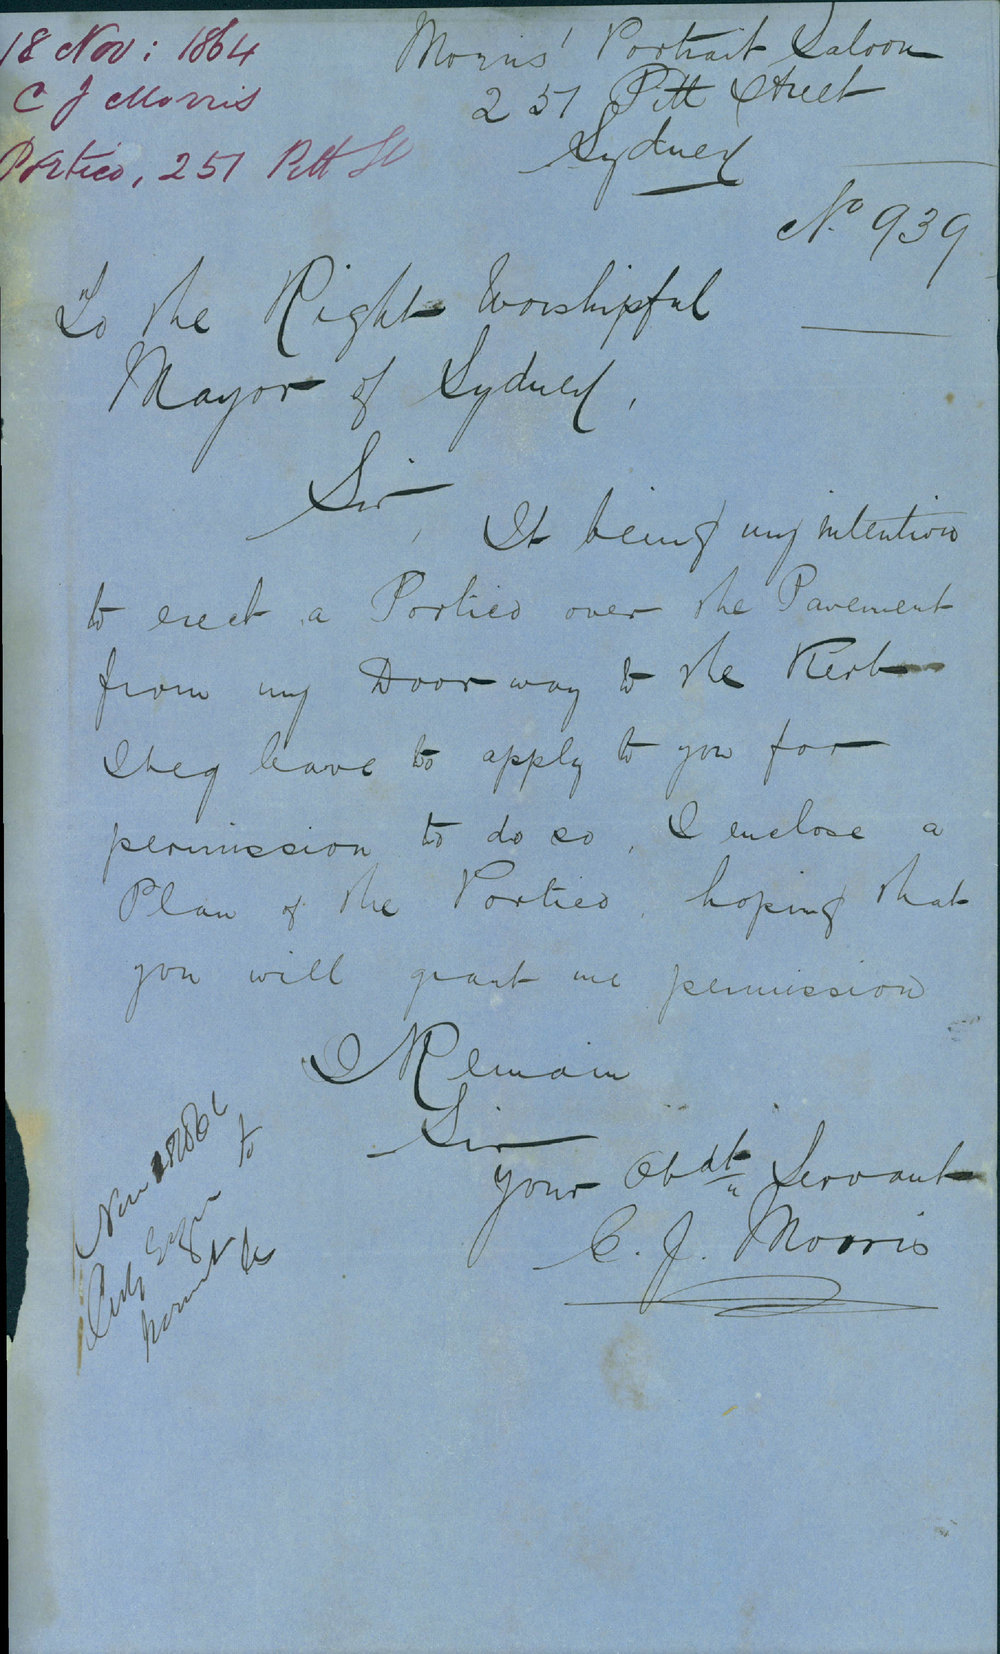 18 Nov: 1864
C J Morris
Portico, 251 Pitt St
Morris' Portrait Saloon
251 Pitt Street
Sydney
No 939
To the Right Worshipful
Mayor of Sydney,
Sir, It being my intention
to erect a Portico over the Pavement
from my Door way to the Kerb
I beg leave to apply to you for
permission to do so, I enclose a
Plan of the Portico, hoping that
you will grant me permission
I Remain
Sir
your Obdt Servant
C. J. Morris
Nov
City to